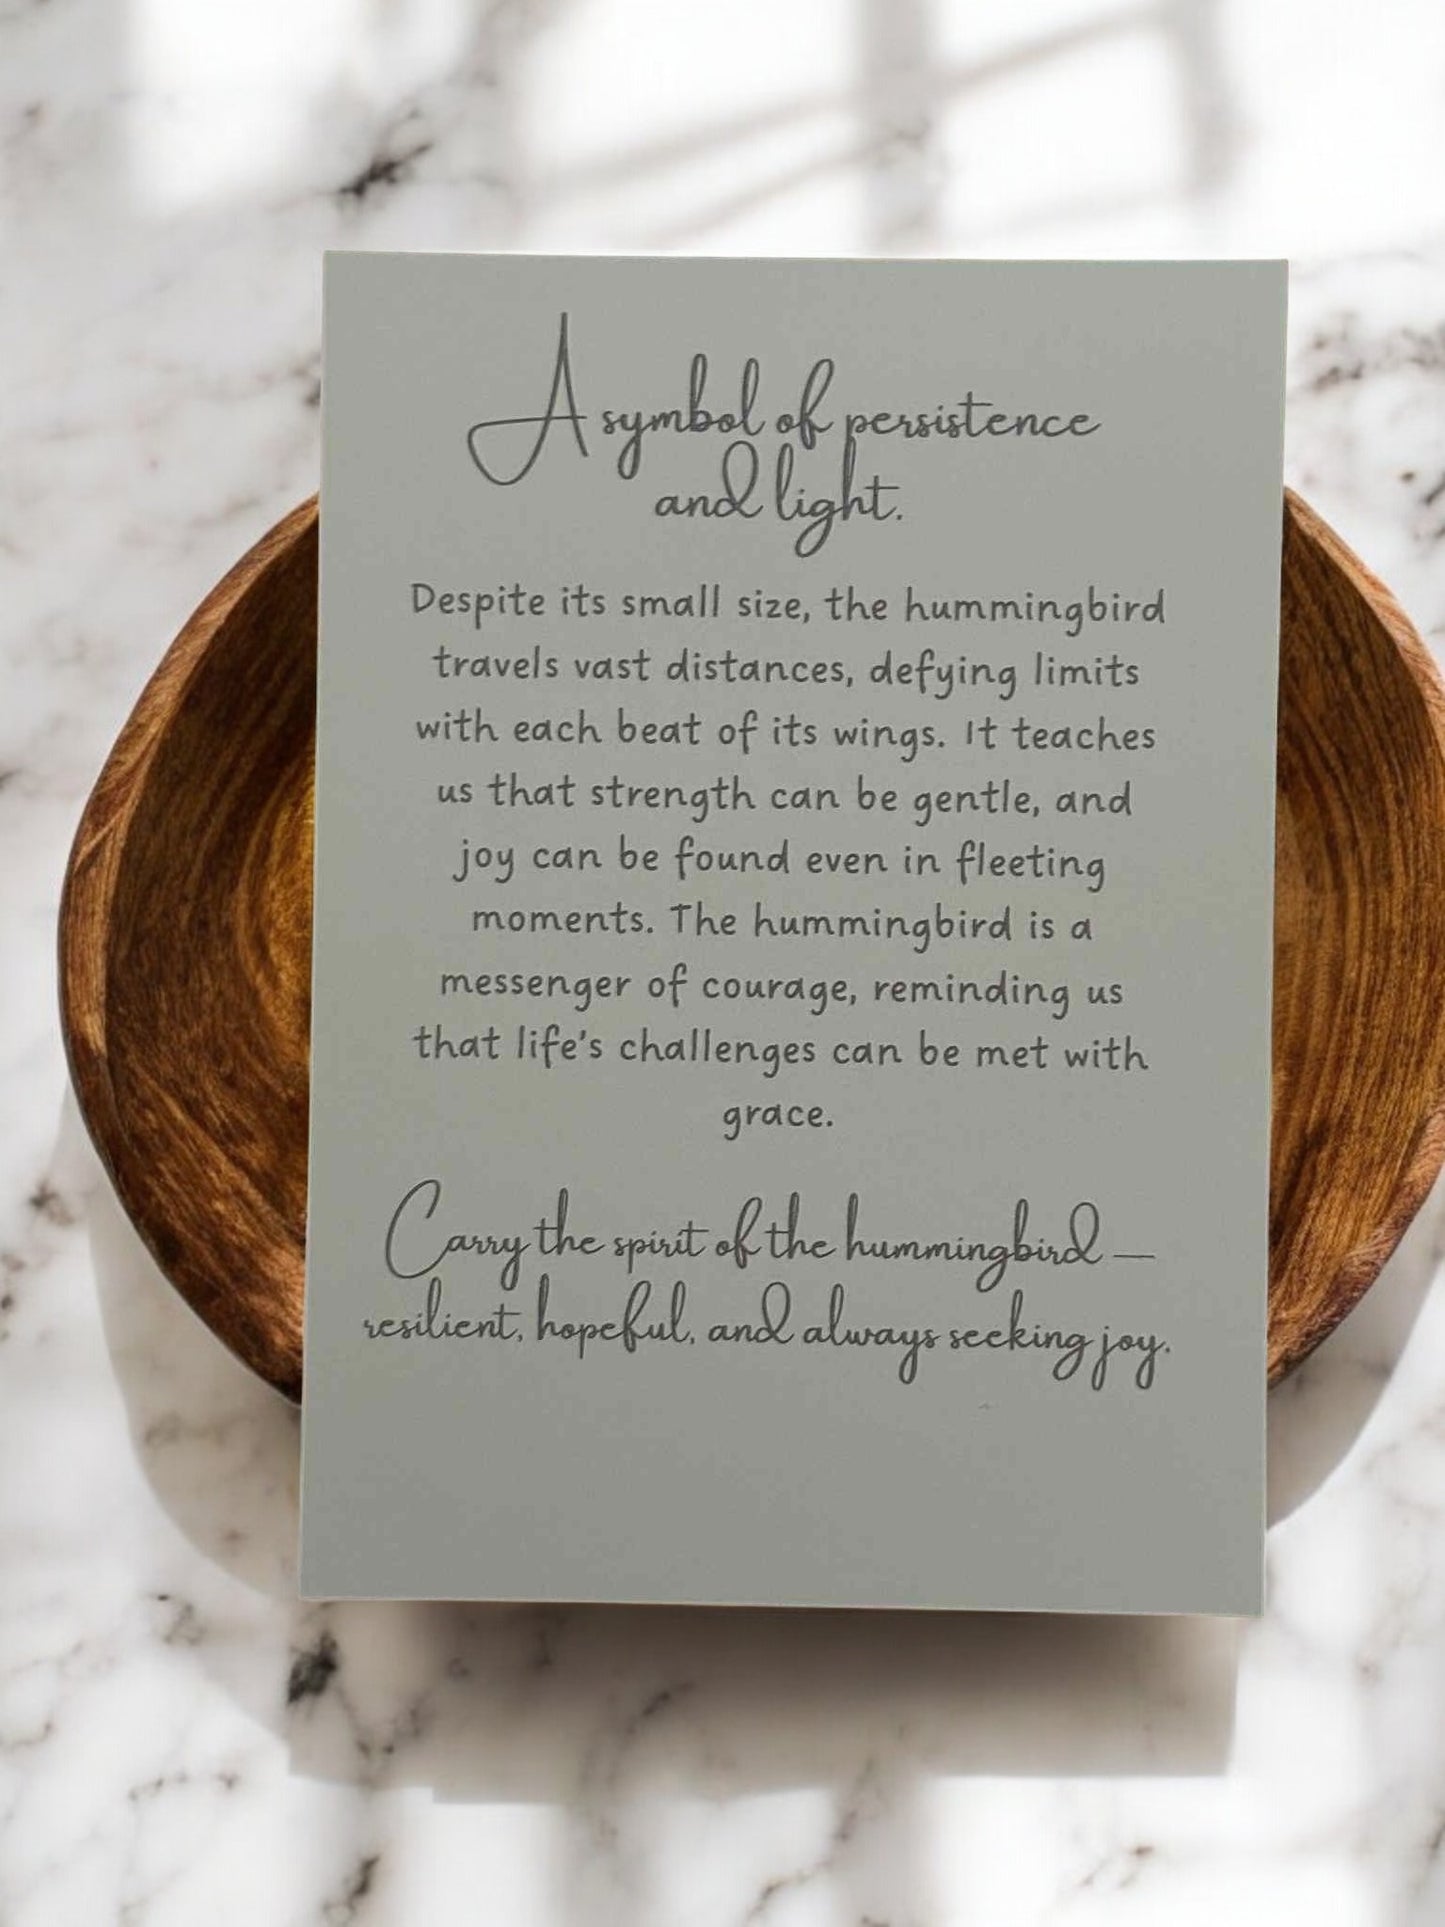 A symbol of persistence
and light.
Despite its small size, the hummingbird
travels vast distances, defying limits
with each beat of its wings. It teaches
us that strength can be gentle, and
joy can be found even in fleeting
moments. The hummingbird is a
messenger of courage, reminding us
that life's challenges can be met with
grace.
Carry the spirit of the hummingbird —
resilient, hopeful, and always seeking joy.